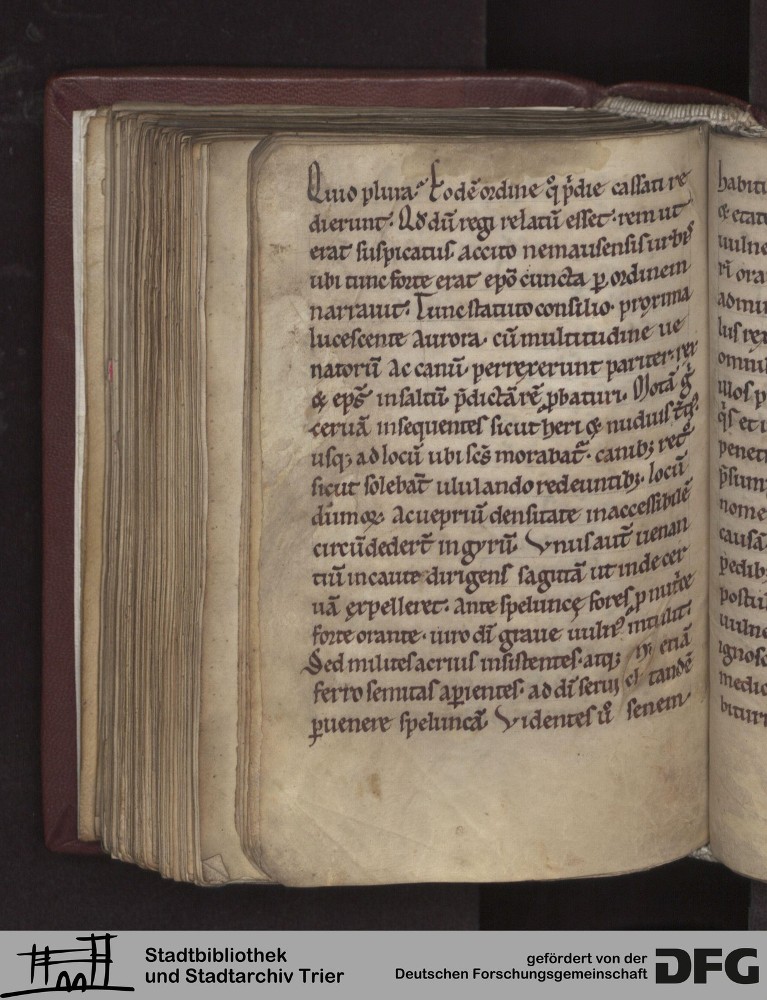 Quid plura? Eodē ordine q̊ p̄die cassati re
dierunt. Qđ dū regi relatū esset. rem ut
erat suspicatus accito nemausensis urbis
ubi tunc forte erat ep̄o cuncta ꝑ ordinem
narrauit. Tunc statuto consilio. proxima
lucescente aurora. cū multitudine ue
natorū ac canū perrexerunt pariter. rex
& ep̄s in saltū p̄dictā rē ꝓbaturi. Motā
ceruā insequentes sicut heri & nudiust̄c̄
usq; ad locū ubi sc̄s morabat̄. canib;
sicut solebat̄ ululando redeuntib;. locū
dumoꝝ ac ueprium densitate inaccessibilē
circūdedert̄ in gyrū. Vnus aut̄ uenan
tiū incaute dirigens sagittā ut inde cer
uā expelleret. ante speluncę fores
forte orante. uiro dī graue uuln᾽ intulit.
Sed milites acrius insistentes. atq; etiā
ferro semitas aꝑientes. ad dī serui tandē
ꝑuenere speluncā. Videntes u̾ senem
habitu
& etate
uulne
ri ora
admi
lus rex
omnib
illos p
q̊s et i
penet
p̄sum
nome
causā
pedib;
postul
uulne
ignosc
medic
bitur
Stadtbibliothek
und Stadtarchiv Trier
gefördert von der
Deutschen Forschungsgemeinschaft
DFG